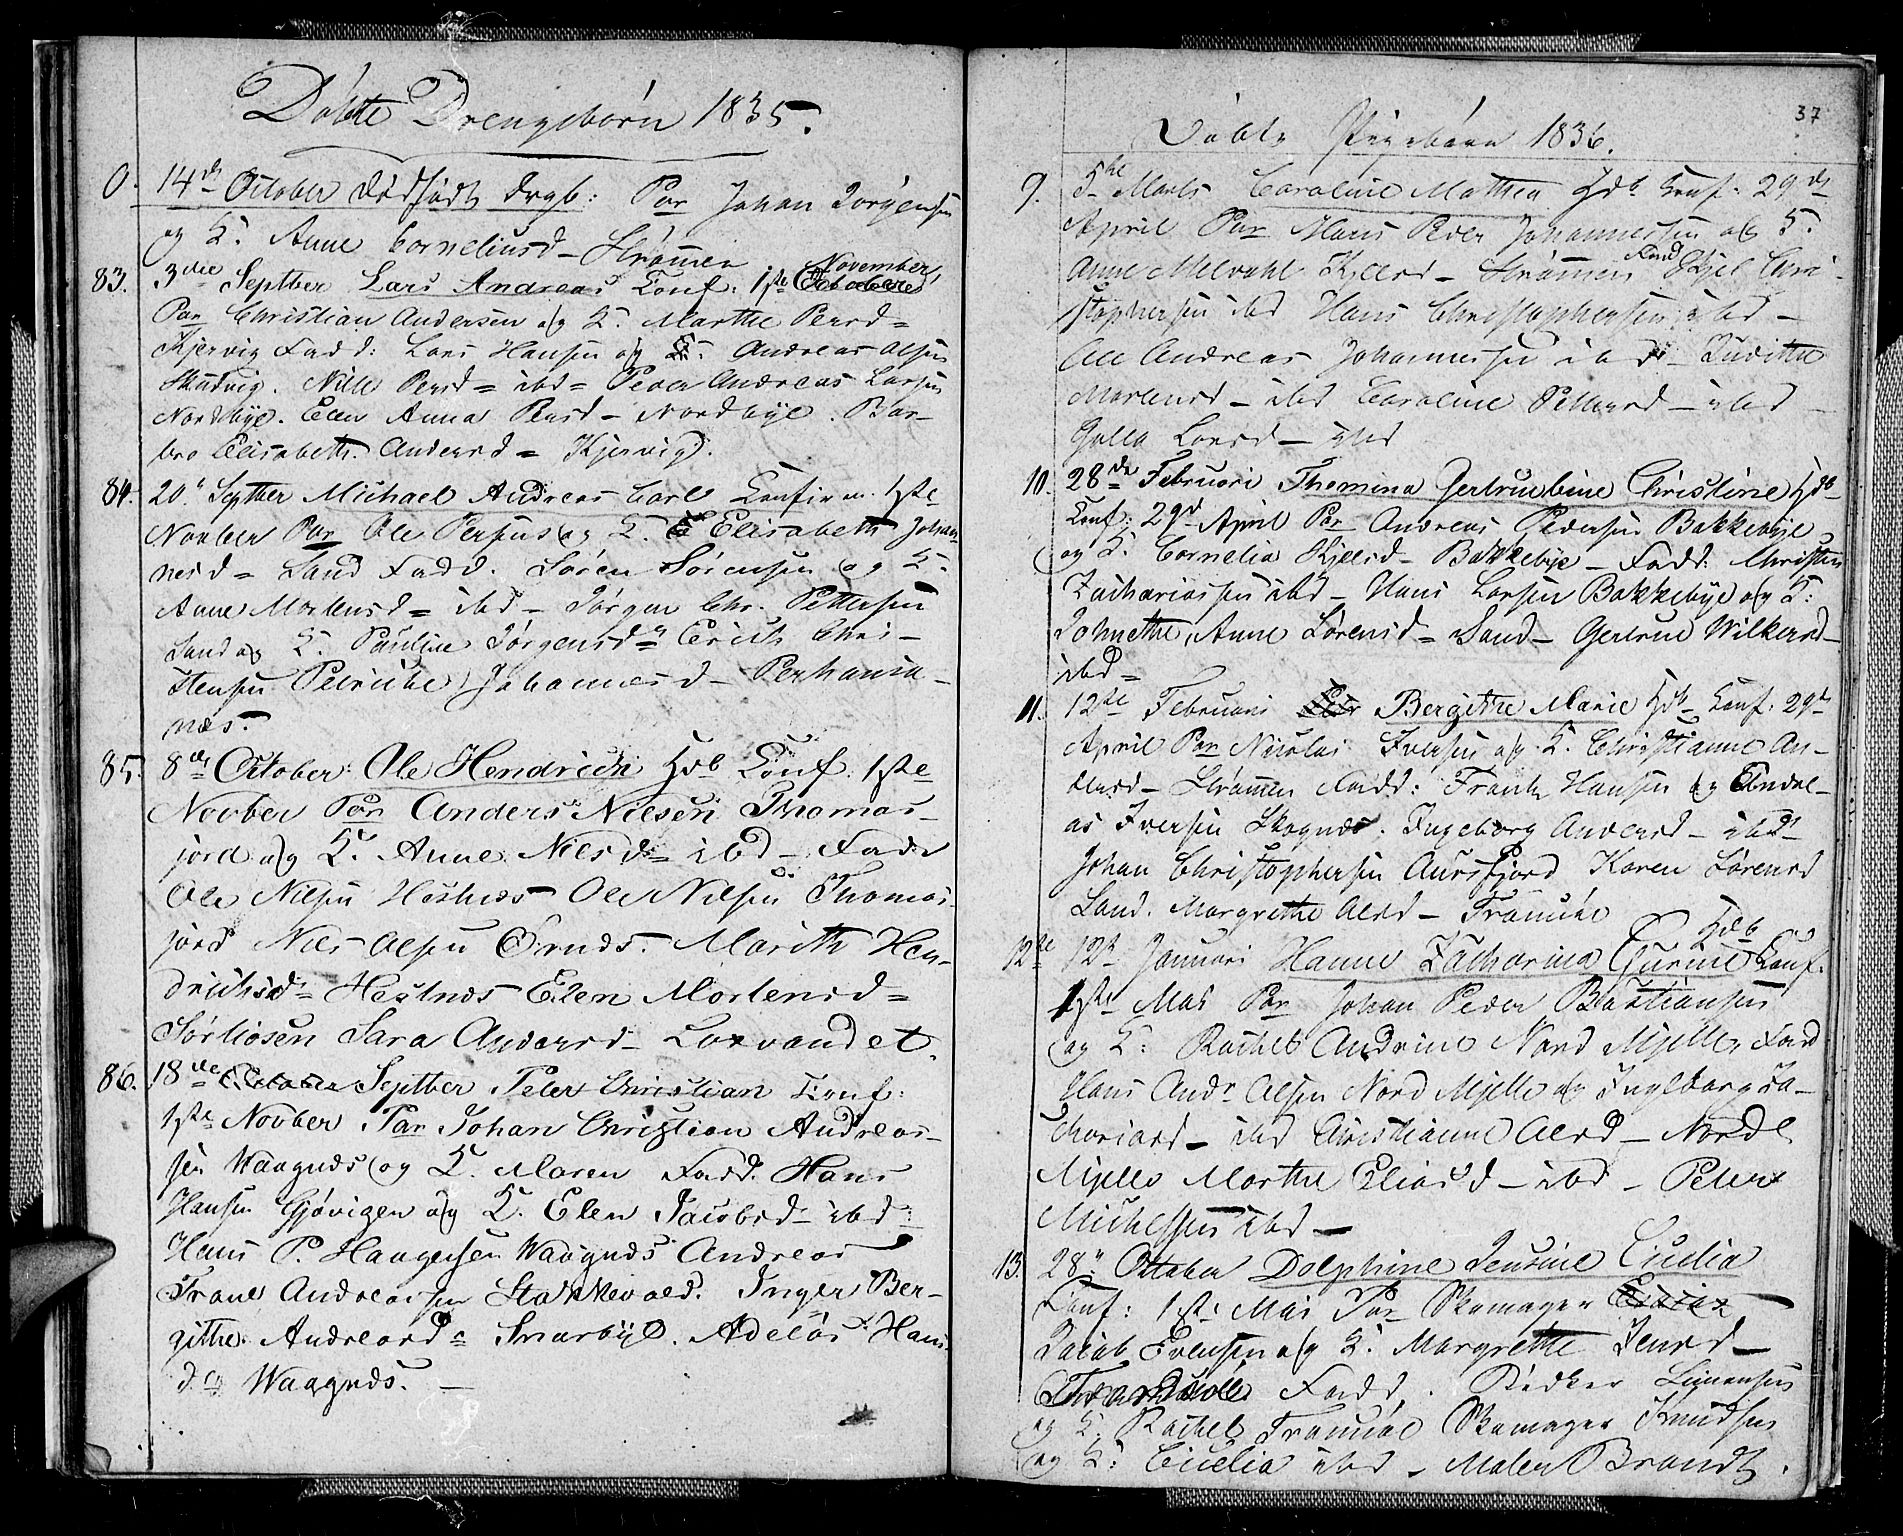 Döbte Drengebørn 1835.
0. 14de October dødfødt Drgb: Par Johan Jörgensen
og K. Anne Corneliusd – Strömmen
83. 3die Septber Lars Andreas Conf: 1ste November
Par Christian Andersen og K. Marthe Persd =
Kjervig Fadd: Lars Hansen og K. Andreas Olsen
Skadvig. Nille Persd = ibd = Peder Andreas Larsen
Nordbye. Elen Anna Persd – Nordbye. Bar–
bro Elisabeth Andersd = Kjervig.
84. 20de Septber Michael Andreas Carl Confirm. 1ste
Novber Par Ole Persen og K. Elisabeth Johan
nesd = Sand Fadd. Sören Sörensen og K.
Anne Mortensd = ibd – Jörgen Chr. Pettersen
Sand og K. Pauline Jörgensd Erich Chri–
stensen Petriche Johannesd –
næs.
85. 8de October Ole Hendrich Hdb Conf. 1ste
Novber Par Anders Nielsen Thomas–
jord og K. Anne Nielsd = ibd – Fadd
Ole Nilsen Hestnæs Ole Nilsen Thomas
jord Niels Olsen Örnæs. Marith Hen–
drichsd = Hestnæs Elen Mortensd =
Sörliosen Sara Andersd – Laxvandet.
86. 18de October Septber Peter Christian Conf:
1ste Novber Par Johan Christian Andreas–
sen Waagnæs og K. Maren Fadd. Hans
Hansen Gjövigen og K. Elen Jacobsd – ibd:
Hans P. Haagensen Waagnæs Andreas
Trane Andreassen Stakkevold. Inger Ber–
githe Andreasd = Snarbye. Adelus Hans
d = Waagnæs. –
37
Döbte Pigebörn 1836.
9. 5te Marts Caroline Mathea Hdb Conf: 29de
April Par Hans Peder Johannessen og K.
Anne Melvahl Kjelsd – Strömmen Fadd Kjel Chri–
stophersen ibd Hans Christophersen ibd –
Ole Andreas Johannessen ibd Judithe
Mortensd – ibd Caroline Pettersd – ibd –
Gølla Larsd – ibd
10. 28de Februari Thomina Gertrudine Christine Hdb
Conf: 29d April Par Andreas Pedersen Bakkebye
og K. Cornelia Kjelsd – Bakkebye – Fadd: Christian
Zachariassen ibd – Hans Larsen Bakkebye og K:
Johnethe, Anne Sörensd = Sand – Gertrud Wilkersd –
ibd =
11. 12te Februari Bergithe Marie Hdb Conf. 29d
April Par Nicolai Iversen og K. Christianne An–
dersd – Strömmen Fadd: Frantz Hansen og Andre–
as Iversen Skognæs. Ingeborg Andersd – ibd
Johan Christophersen Aursfjord Karen Sörensd
Sand. Margrethe Olsd – Tromsöe
Hdb
12te 12te Januari Hanne Zacharina Gurine Conf.
1ste Mai Par Johan Peder Bastiansen
og K: Rachel Andrine Nord Mjelle, Fadd
Hans Andr Olsen Nord Mjelle og Ingeborg Za–
chariasd – ibd Christianne Olsd – Nord
Mjelle Marthe Eliasd – ibd – Peter
Michelsen ibd –
13. 28de October Dolphine Jensine Cicilia
Conf: 1ste Mai Par Skomager
Jacob Evensen og K. Margrethe Jensd –
Fadd. Rödker Simonsen
og K. Rachel Tromsöe Skomager Knudsen
og K. Cicilia ibd – Maler Brandt.